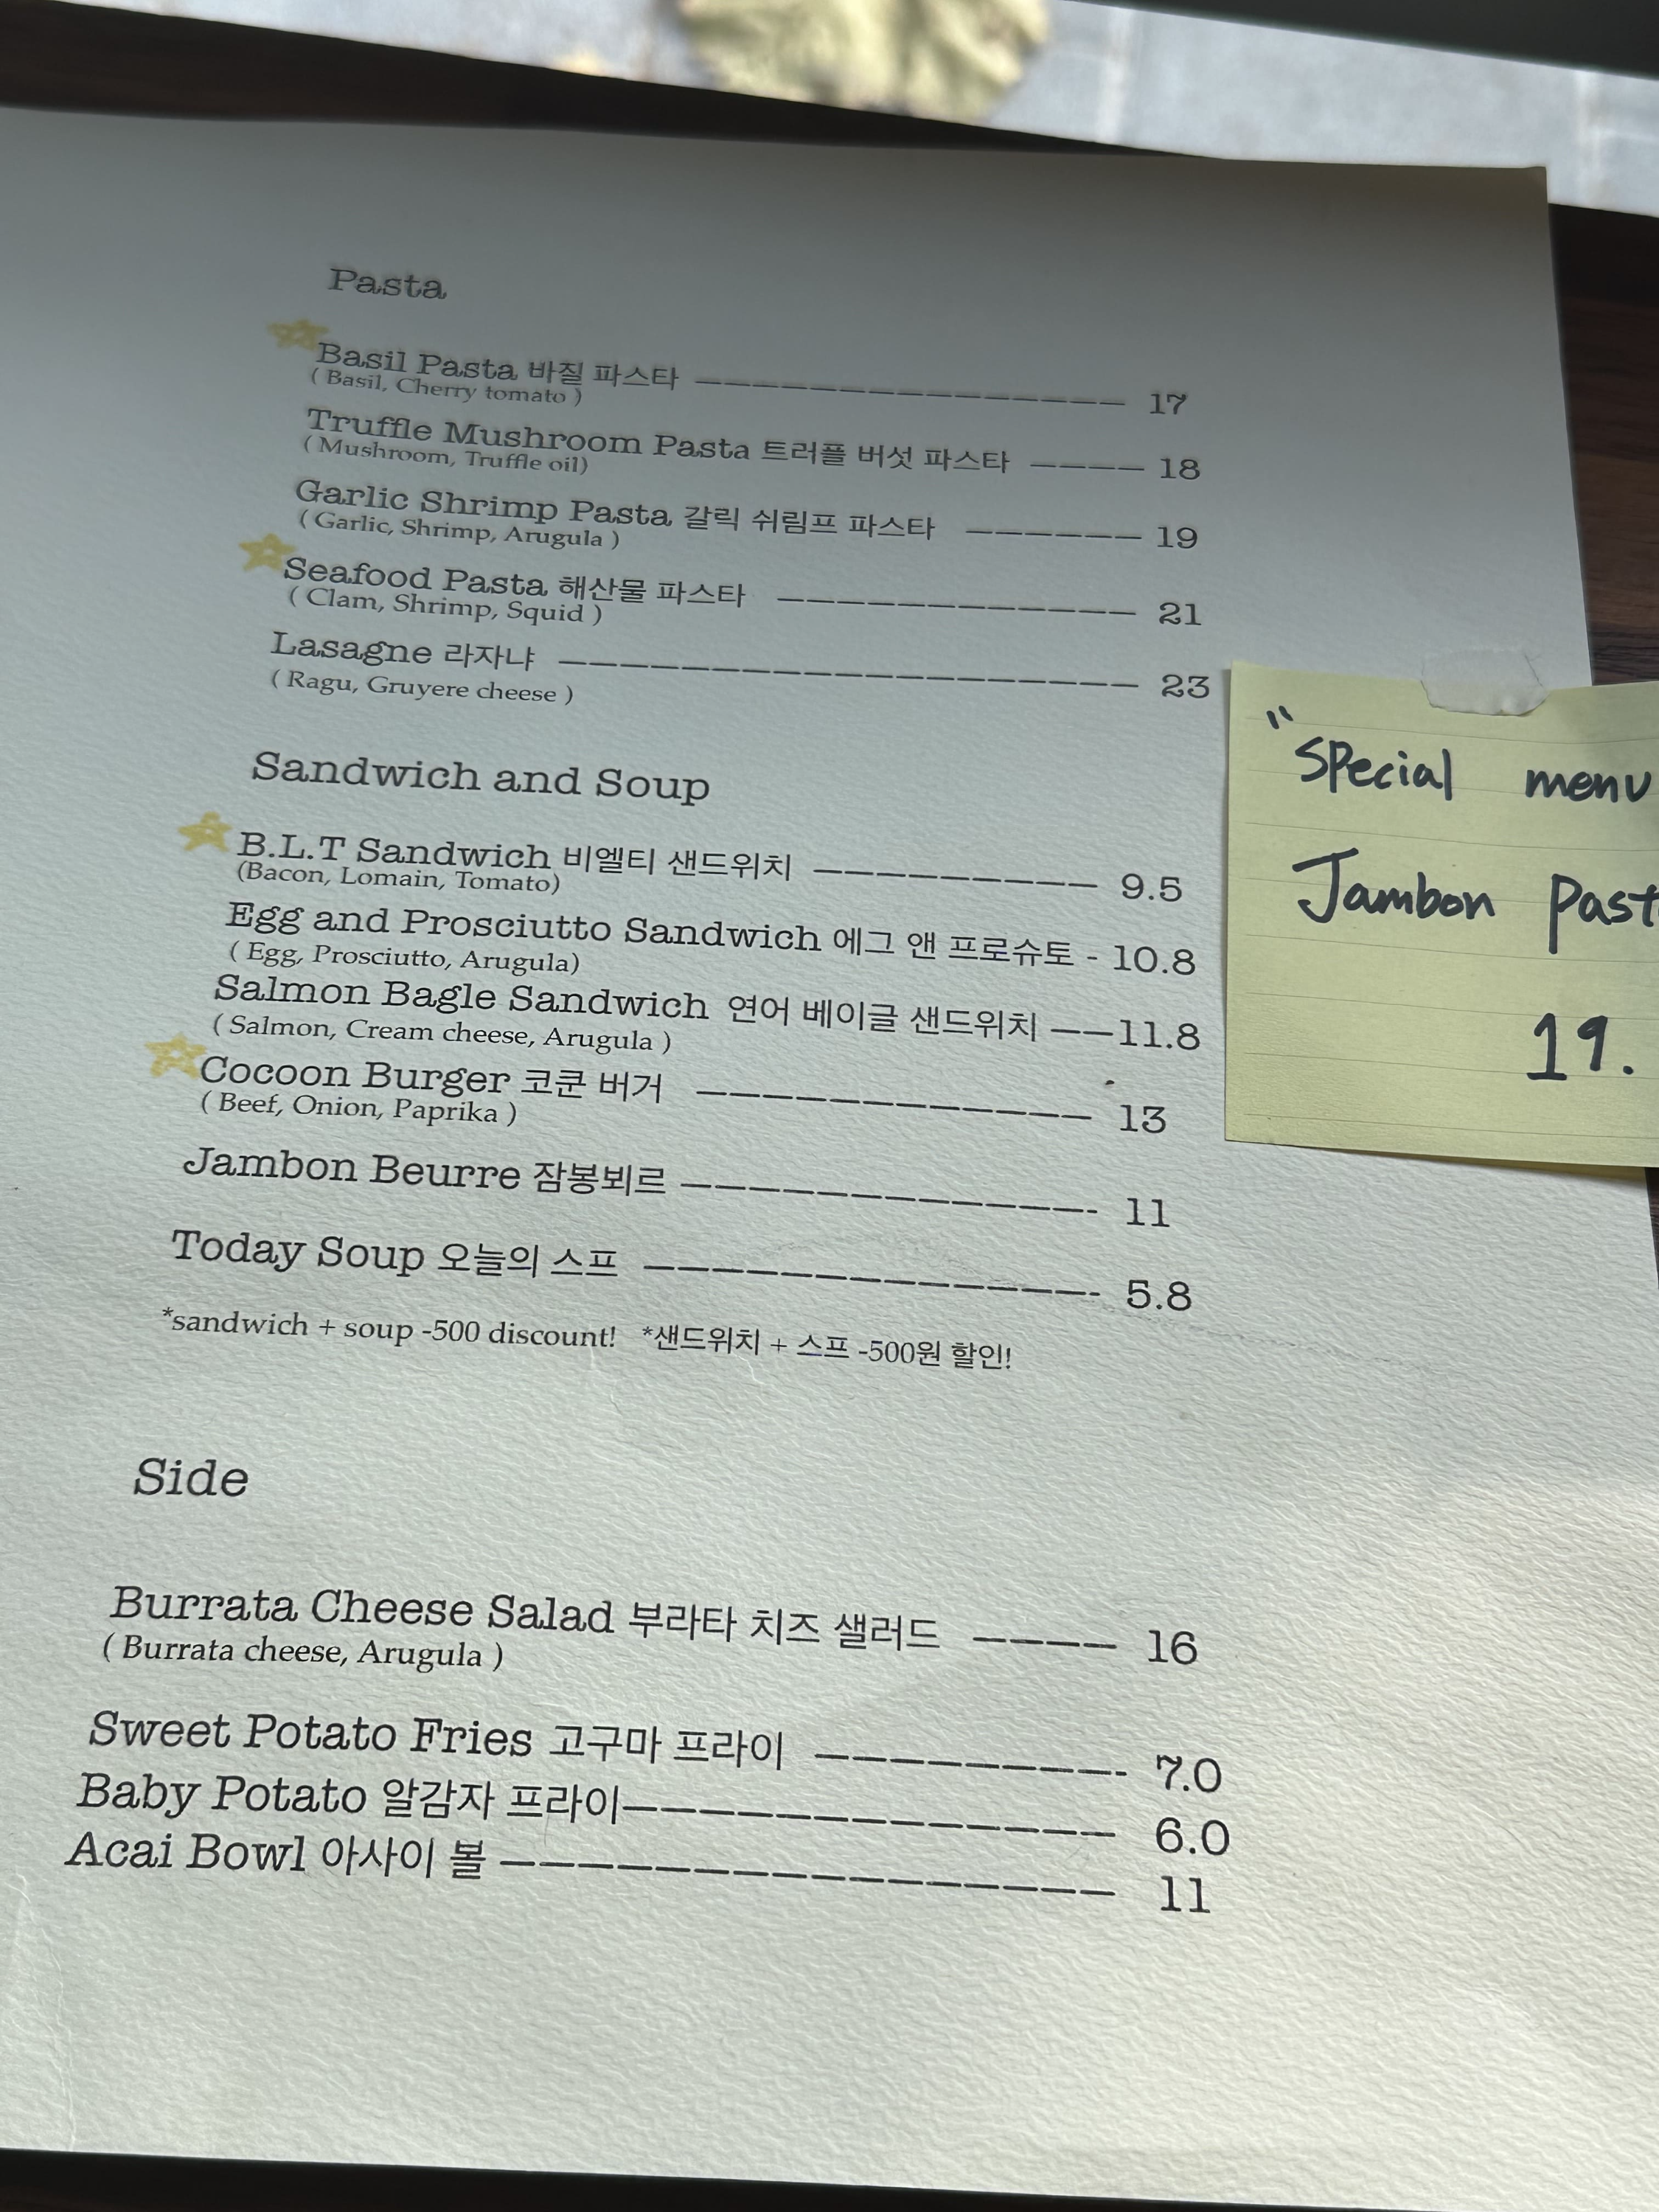 Pasta
Basil Pasta 바질 파스타 ——————————————— 17
( Basil, Cherry tomato )
Truffle Mushroom Pasta 트러플 버섯 파스타 ———— 18
( Mushroom, Truffle oil)
Garlic Shrimp Pasta 갈릭 쉬림프 파스타 —————— 19
( Garlic, Shrimp, Arugula )
Seafood Pasta 해산물 파스타 ———————————— 21
( Clam, Shrimp, Squid )
Lasagne 라자냐 ——————————————————— 23
( Ragu, Gruyere cheese )
Sandwich and Soup
B.L.T Sandwich 비엘티 샌드위치 ————————— 9.5
(Bacon, Lomain, Tomato)
Egg and Prosciutto Sandwich 에그 앤 프로슈토 - 10.8
( Egg, Prosciutto, Arugula)
Salmon Bagle Sandwich 연어 베이글 샌드위치 ——11.8
( Salmon, Cream cheese, Arugula )
Cocoon Burger 코쿤 버거 ———————————— 13
( Beef, Onion, Paprika )
Jambon Beurre 잠봉뵈르 ————————————- 11
Today Soup 오늘의 스프 —————————————- 5.8
*sandwich + soup -500 discount! *샌드위치 + 스프 -500원 할인!
Side
Burrata Cheese Salad 부라타 치즈 샐러드 ———— 16
( Burrata cheese, Arugula )
Sweet Potato Fries 고구마 프라이 ————————- 7.0
Baby Potato 알감자 프라이————————————— 6.0
Acai Bowl 아사이 볼 ————————————————— 11
"Special menu
Jambon
19.